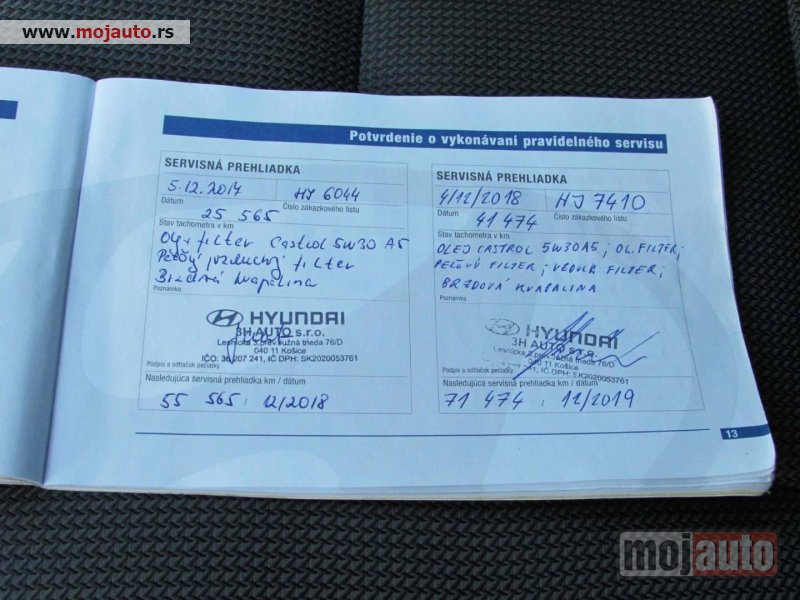 www.mojauto.rs
Potvrdenie o vykonávaní pravidelného servisu
SERVISNÁ PREHLIADKA
5.12.2017 HJ 6044
Dátum Číslo zákazkového listu
25 565
Stav tachometra v km
Olej + filter Castrol 5W30 A5
Peľový vzduchový filter
Brzdová kvapalina
Poznámka
HYUNDAI
3H AUTO s.r.o.
Lesnícka 3,prev.Južná trieda 76/D
040 11 Košice
IČO: 36 207 241, IČ DPH: SK2020053761
Podpis a odtlačok pečiatky
Nasledujúca servisná prehliadka km / dátum
55 565 , 12/2018
SERVISNÁ PREHLIADKA
4/12/2018 HJ 7410
Dátum Číslo zákazkového listu
41 474
Stav tachometra v km
OLEJ CASTROL 5W30A5; OL. FILTER;
PEĽOVÝ FILTER; VZDUCH FILTER;
BRZDOVÁ KVAPALINA
Poznámka
HYUNDAI
3H AUTO s.r.o.
Lesnícka 3,prev.Južná trieda 76/D
040 11 Košice
241, IČ DPH: SK2020053761
Podpis a odtlačok pečiatky
Nasledujúca servisná prehliadka km / dátum
71 474 , 12/2019
13
mojauto